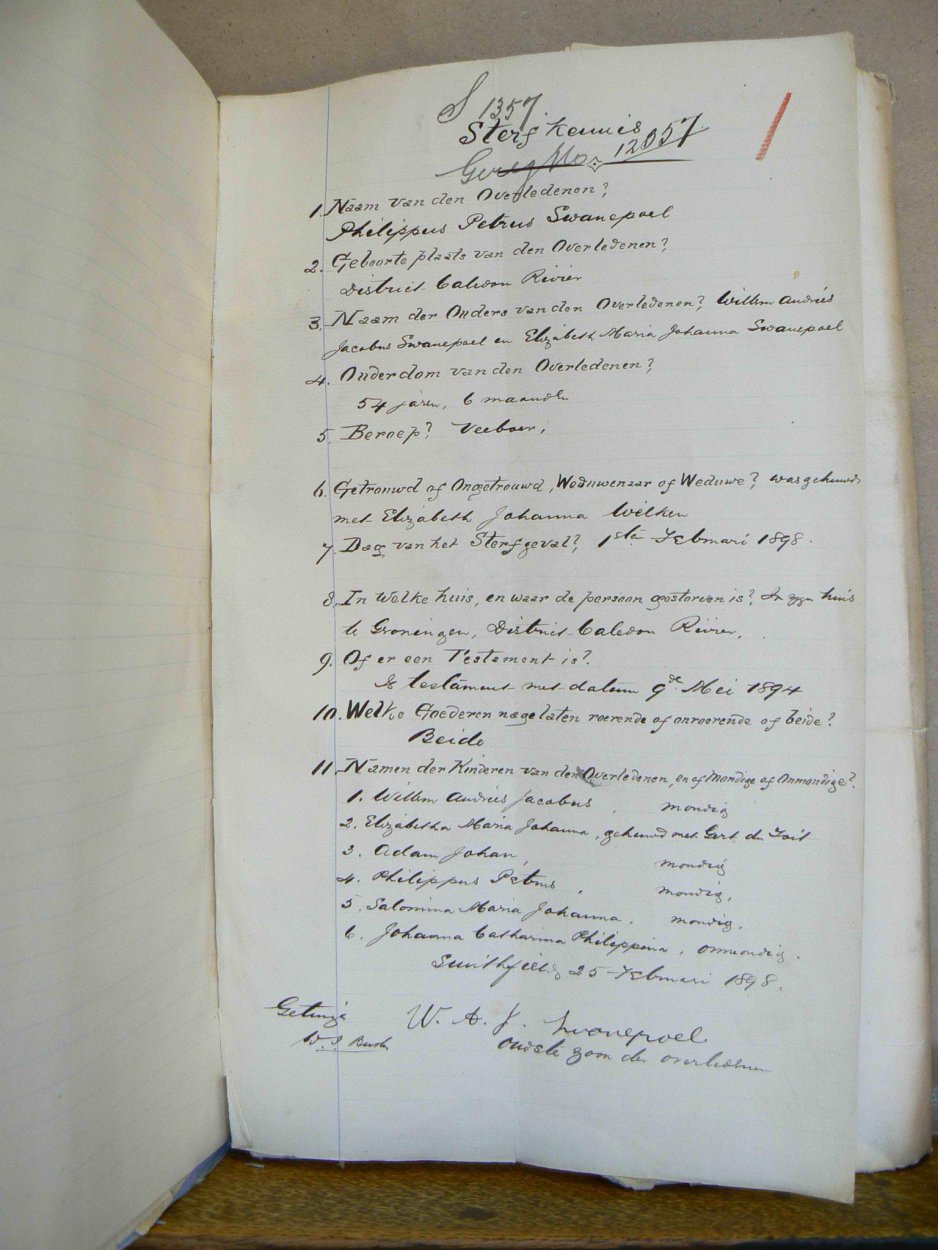 S 1357
Sterfkennis
Gereg No. 12057
1. Naam van den Overledenen?
Philippus Petrus Swanepoel
2. Geboorte plaats van den Overledenen?
District Caledon Rivier
3. Naam der Ouders van den Overledenen? Willem Andries
Jacobus Swanepoel en Elizabeth Maria Johanna Swanepoel
4. Ouderdom van den Overledenen?
54 jaren, 6 maanden
5. Beroep? Veeboer,
6. Getrouwd of Ongetrouwd, Weduwenaar of Weduwe? was gehuwd
met Elizabeth Johanna Wilken
7. Dag van het Sterfgeval? 1sten Februari 1898.
8. In Welke huis, en waar de persoon gestorven is? In zyn huis
te Groningen, District Caledon Rivier,
9. Of er een Testament is?
Is testament met datum 9de Mei 1894
10. Welke Goederen nagelaten roerende of onroerende of beide?
Beide
11. Namen der Kinderen van den Overledenen, en of Mondige of Onmondige?
1. Willem Andries Jacobus, mondig
2. Elizabetha Maria Johanna, gehuwd met Gert du Toit
3. Adam Johan, mondig
4. Philippus Petrus, mondig,
5. Salomina Maria Johanna, mondig,
6. Johanna Catharina Philippina, onmondig.
Smithfield, 25 Februari 1898.
Getuige
W. A. J. Swanepoel
oudste zoon der overledenen